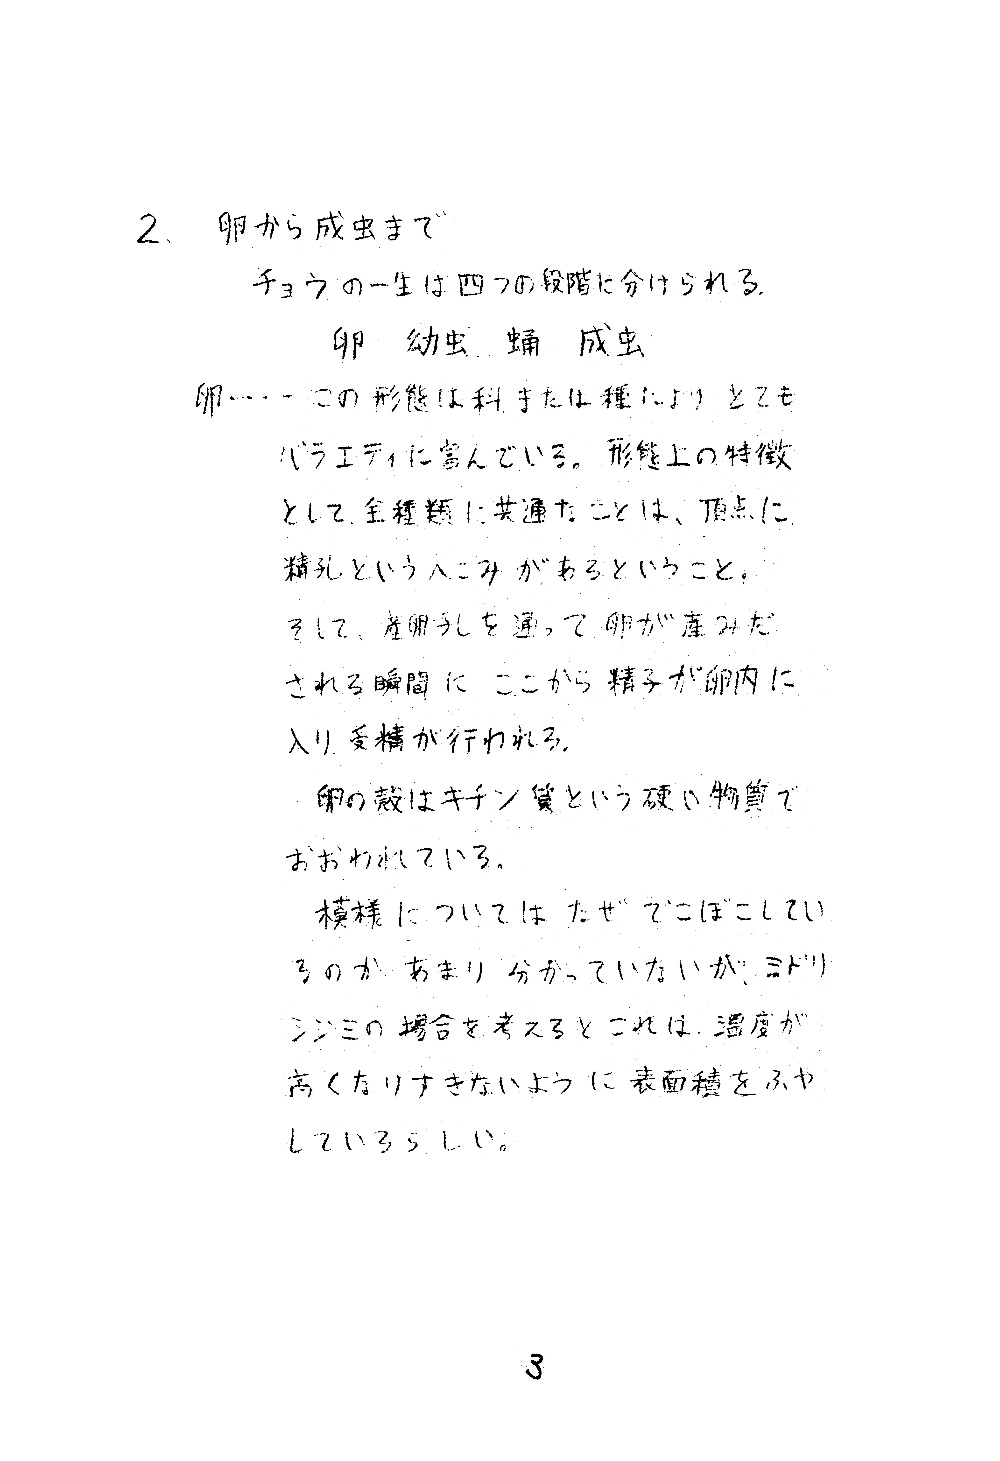 2. 卵から成虫まで
チョウの一生は四つの段階に分けられる.
卵 幼虫 蛹 成虫
卵・・・・この形態は科または種によりとても
バラエティに富んでいる。形態上の特徴
として全種類に共通なことは、頂点に
精孔というへこみがあるということ。
そして、産卵孔を通って卵が産みだ
される瞬間に ここから精子が卵内に
入り受精が行われる.
卵の殻はキチン質という硬い物質で
おおわれている。
模様については なぜ でこぼこしてい
るのか あまり 分かっていないが、ミドリ
シジミの場合を考えるとこれは、温度が
高くなりすぎないように表面積をふや
しているらしい。
3